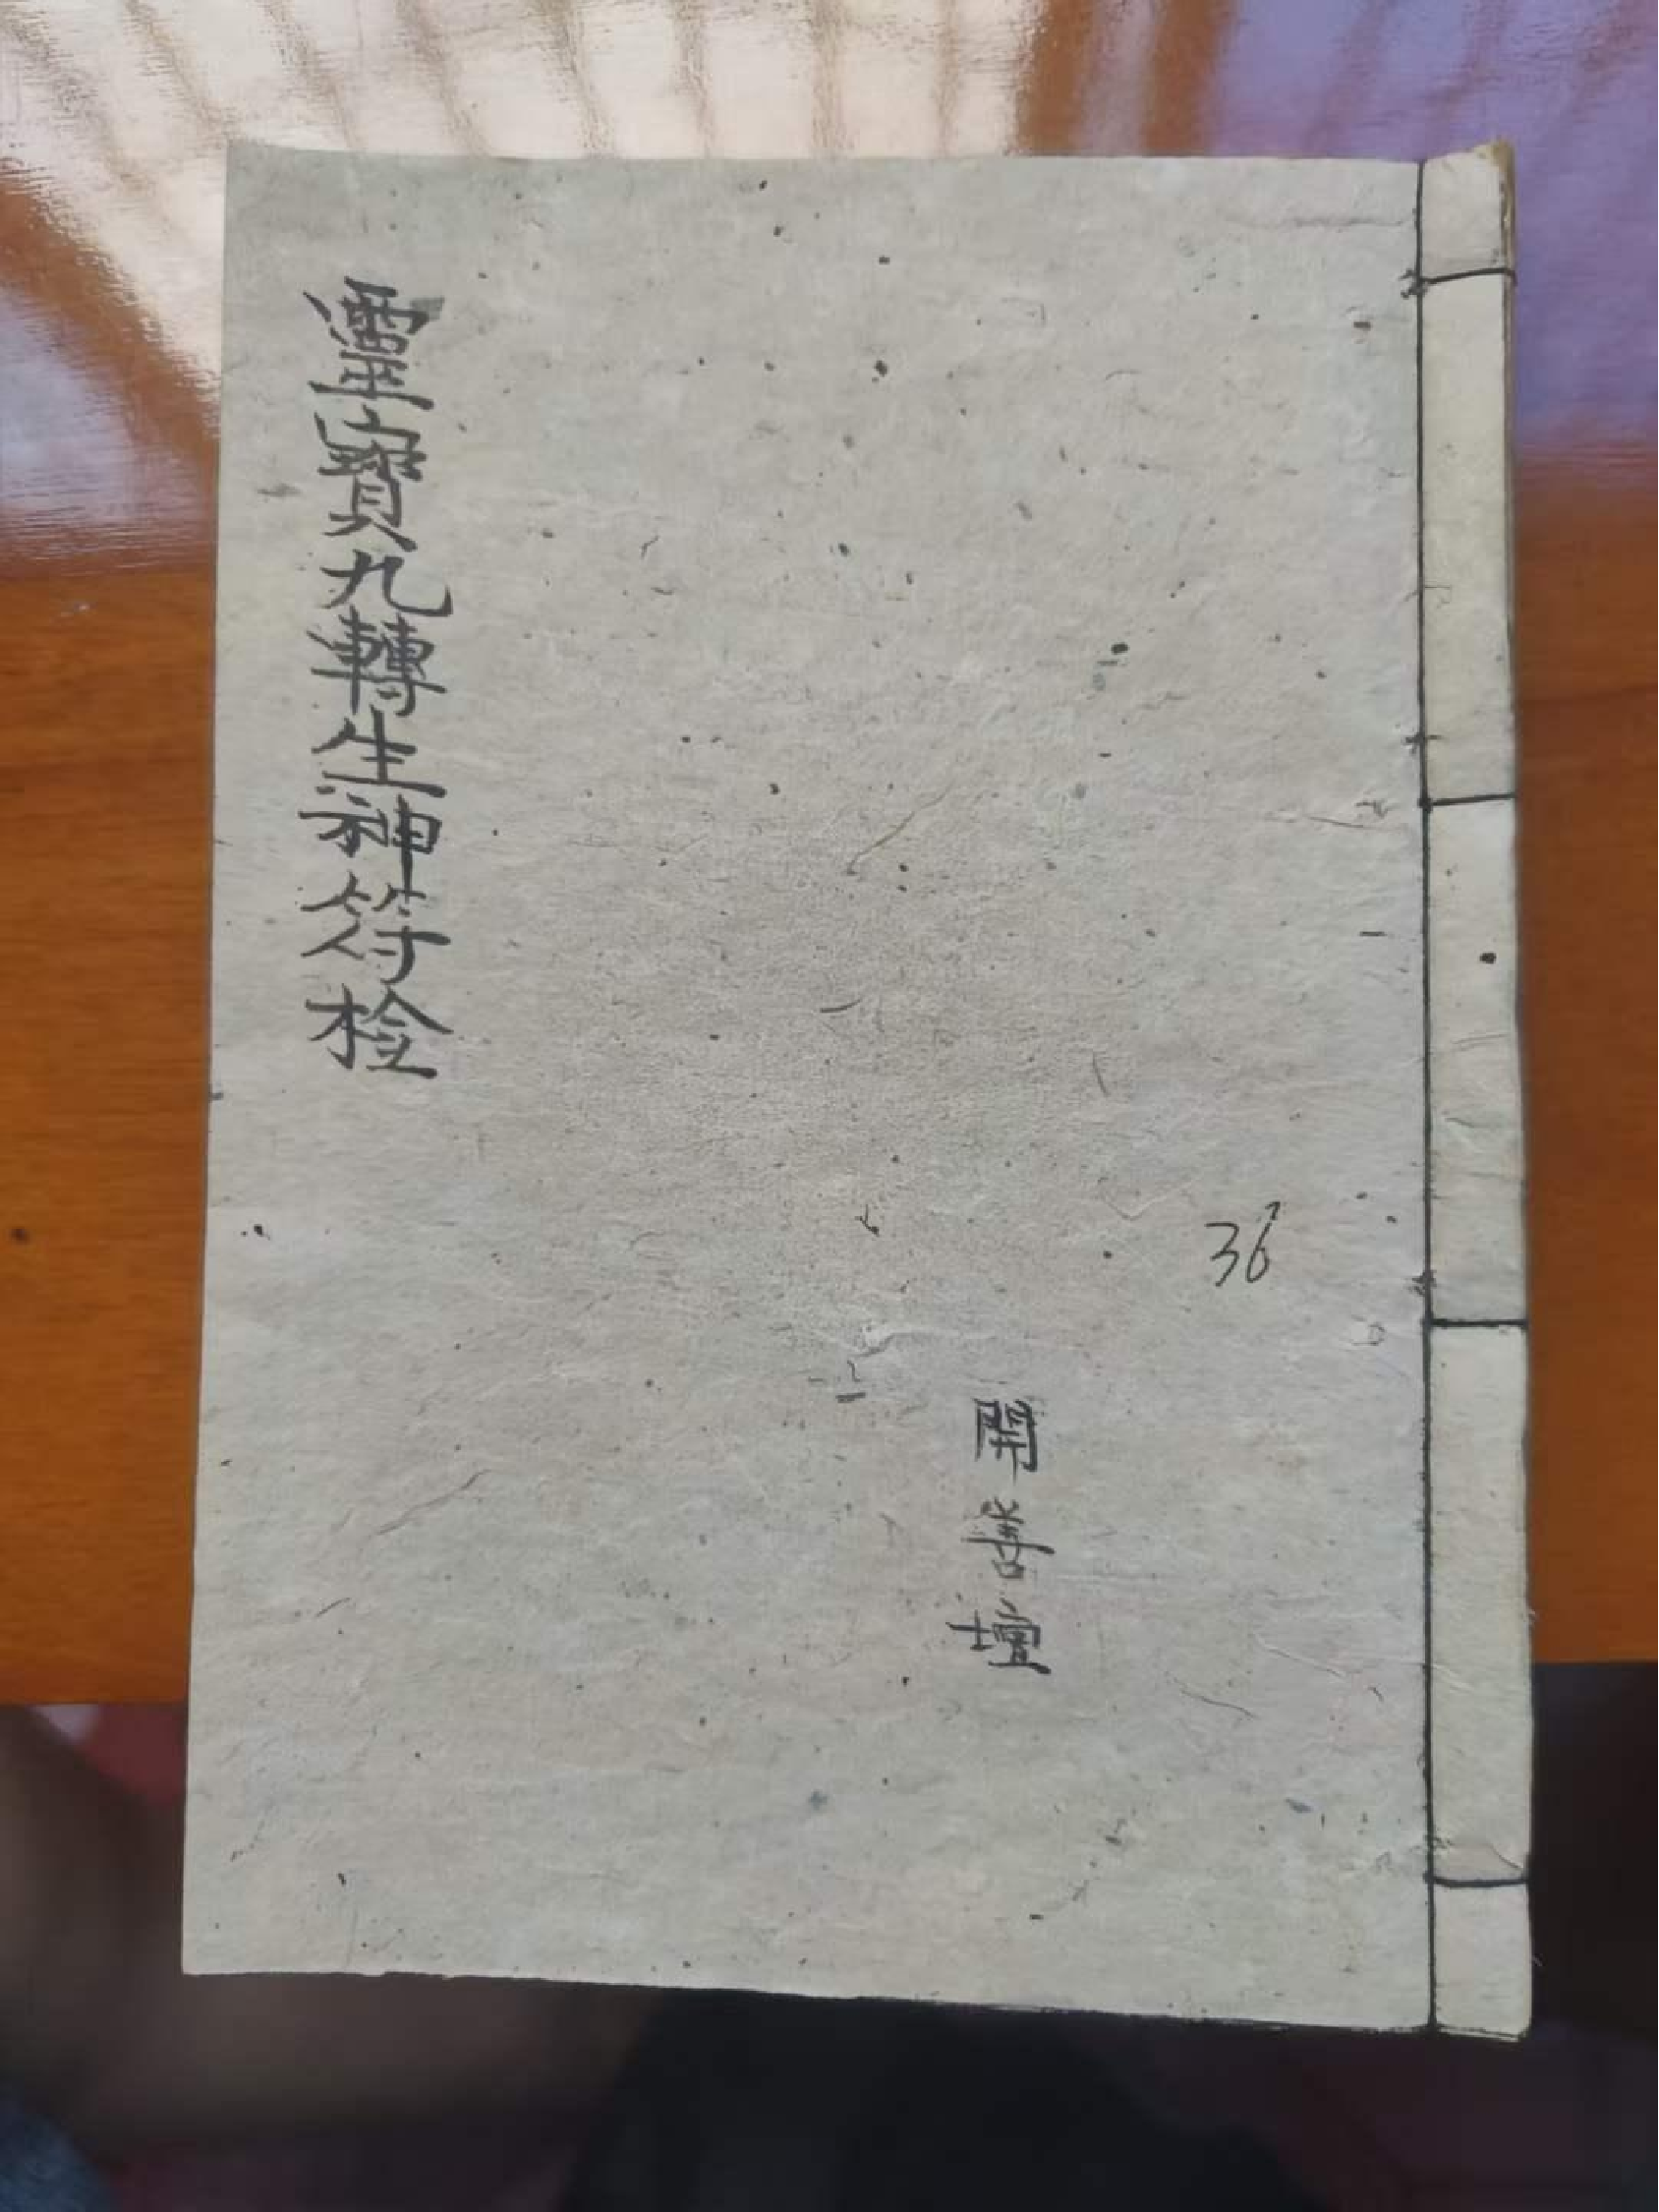 靈寶九轉生神符检
36
開善壇